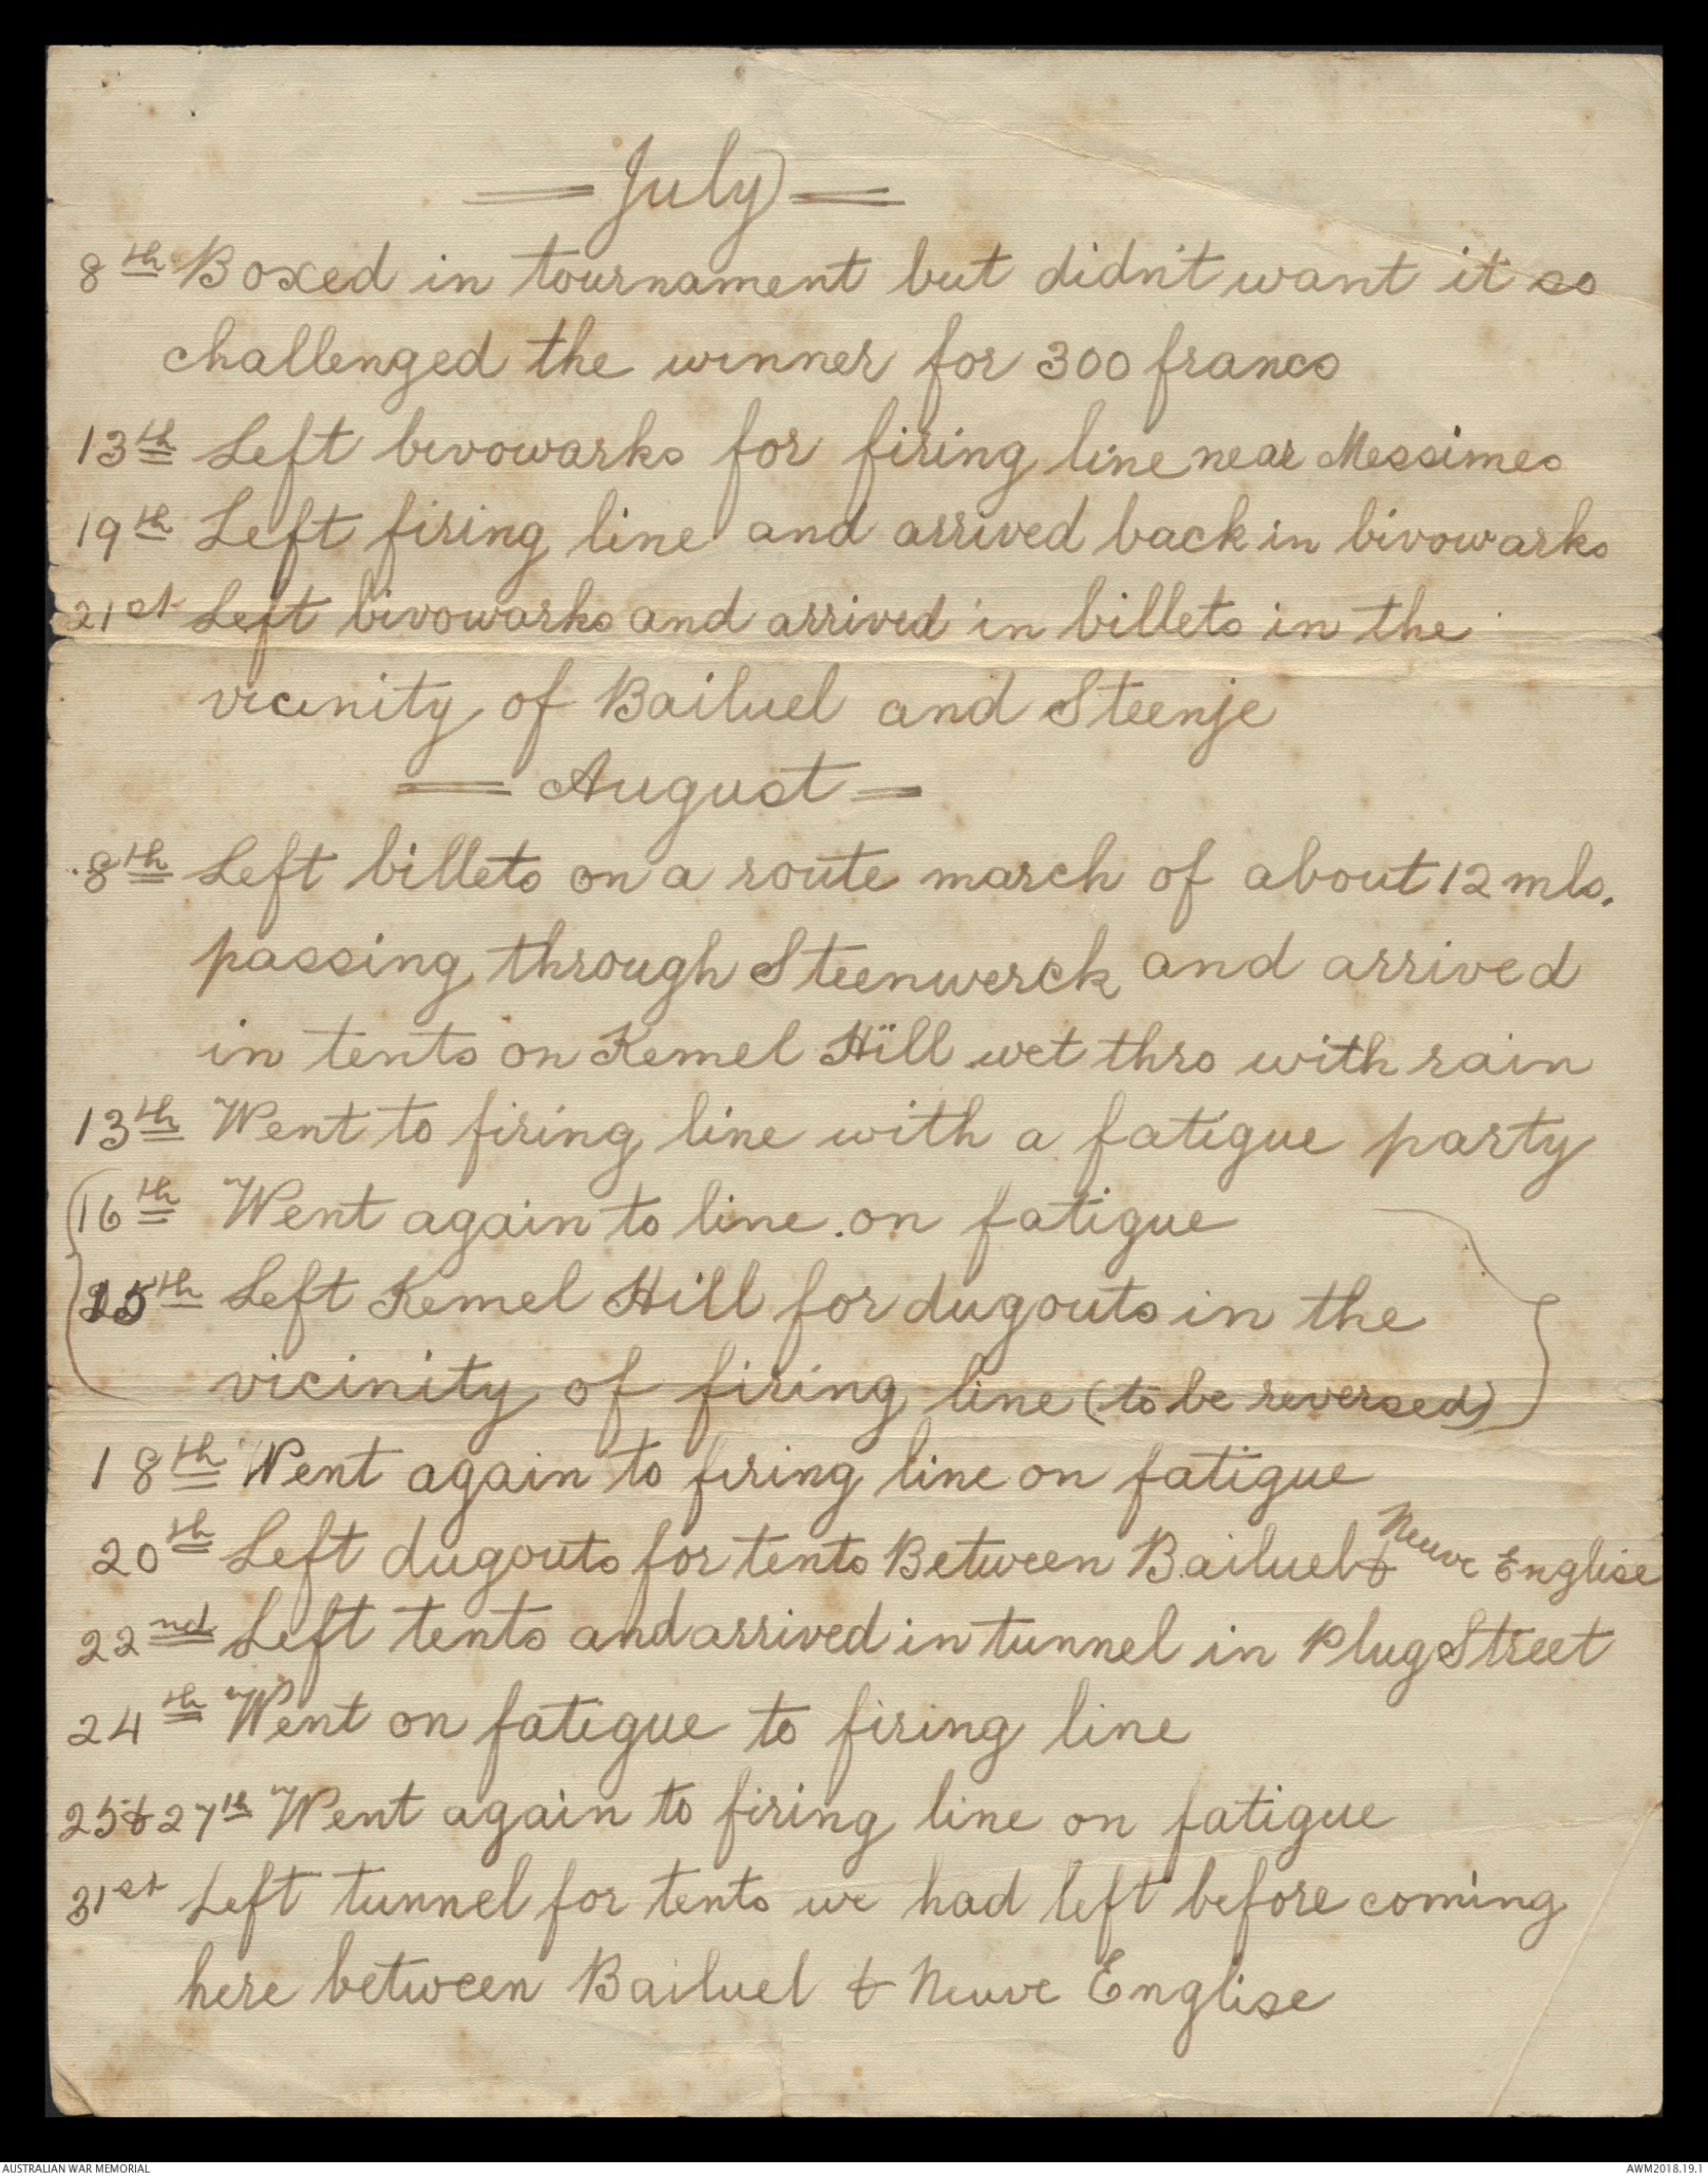 = July =
8th Boxed in tournament but didn't want it so
challenged the winner for 300 francs
13th Left bivowarks for firing line near Messimes
19th Left firing line and arrived back in bivowarks
21st Left bivowarks and arrived in billets in the
vicinity of Bailuel and Steenje
= August =
8th Left billets on a route march of about 12 mls.
passing through Steenwerck and arrived
in tents on Kemel Hill wet thro with rain
13th Went to firing line with a fatigue party
16th Went again to line on fatigue
15th Left Kemel Hill for dugouts in the
vicinity of firing line (to be reversed)
18th Went again to firing line on fatigue
20th Left dugouts for tents Between Bailuel & Neuve Englise
22nd Left tents and arrived in tunnel in Plug Street
24th Went on fatigue to firing line
25 & 27th Went again to firing line on fatigue
31st Left tunnel for tents we had left before coming
here between Bailuel & Neuve Englise
AUSTRALIAN WAR MEMORIAL
AWM2018.19.1